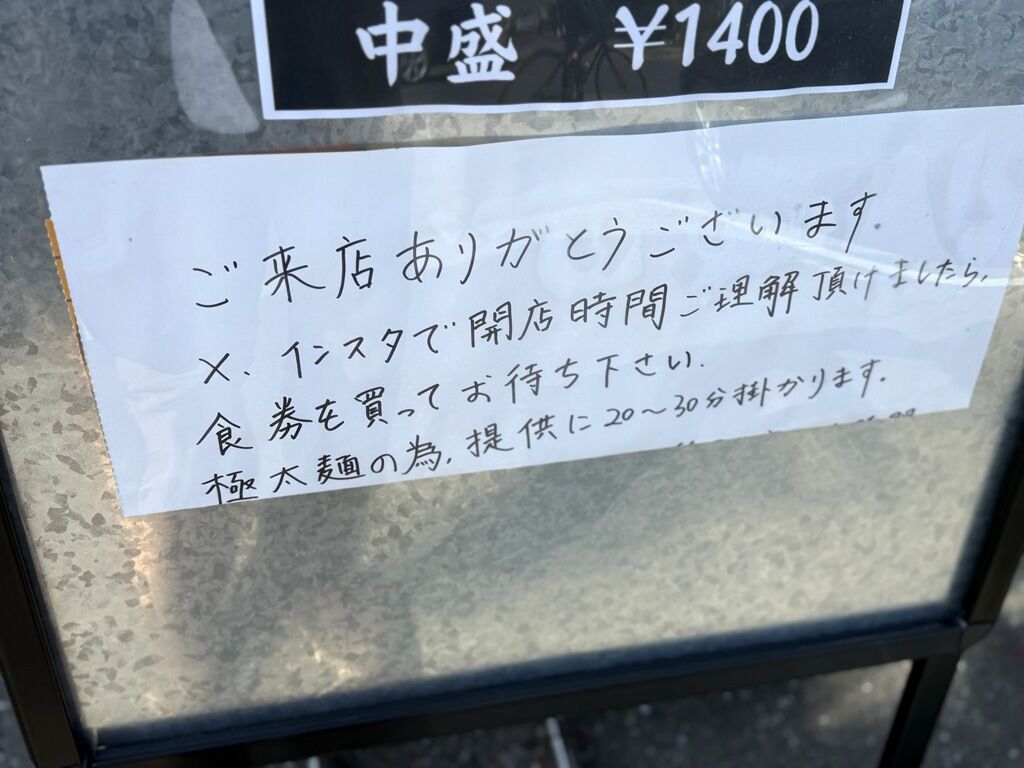 中盛 ¥1400
ご来店ありがとうございます.
×、インスタで開店時間ご理解頂けましたら、
食券を買ってお待ち下さい.
極太麺の為、提供に20〜30分掛かります.